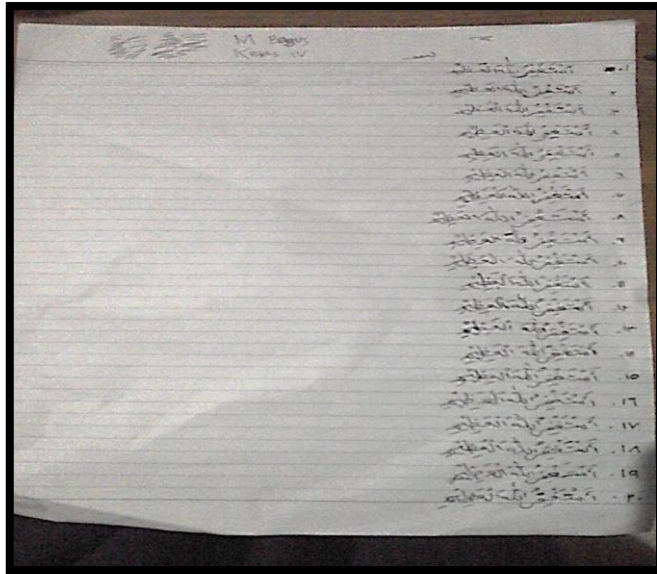 M Bagus
Kelas IV
١. أستغفر الله العظيم
٢. أستغفر الله العظيم
٣. أستغفر الله العظيم
٤. أستغفر الله العظيم
٥. أستغفر الله العظيم
٦. أستغفر الله العظيم
٧. أستغفر الله العظيم
٨. أستغفر الله العظيم
٩. أستغفر الله العظيم
أستغفر الله العظيم
أستغفر الله العظيم
أستغفر الله العظيم
أستغفر الله العظيم
أستغفر الله العظيم
١٥. أستغفر الله العظيم
١٦. أستغفر الله العظيم
١٧. أستغفر الله العظيم
١٨. أستغفر الله العظيم
١٩. أستغفر الله العظيم
٢٠. أستغفر الله العظيم